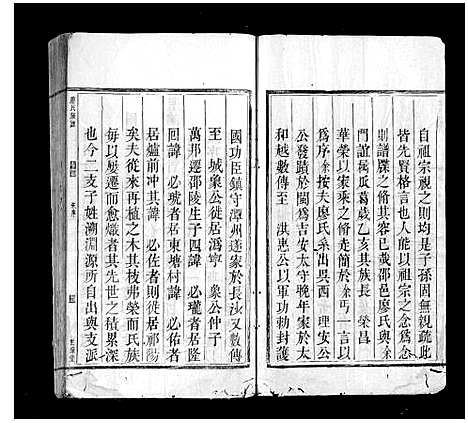 自祖宗視之則均是子孫固無親疏此
皆先賢格言也人能以祖宗之念為念
則譜牒之修其容已哉邵邑廖氏與余
門誼屬瓜葛歲乙亥其族長　榮昌
華榮以家乘之修先簡於余丐一言以
為序余按夫廖氏系出吳西　理安公
公發蹟於閩為吉安太守晚年家於太
和越數傳至　淇惠公以軍功勅封護
國功臣鎮守潭州遂家於長沙又數傳
至　城象公徙居溈寧　象公仲子
萬邦遷邵陵生子四諱　必瓏者居隆
回諱　必琥者居東塘村諱　必佑者
居爐前冲其諱　必佐者則徙居祁陽
矣夫徙來再植之木其枝弗榮而氏族
每以屢遷而愈熾者其先世之積累深
也今二支子姓溯淵源所自出與支派
廖氏族譜